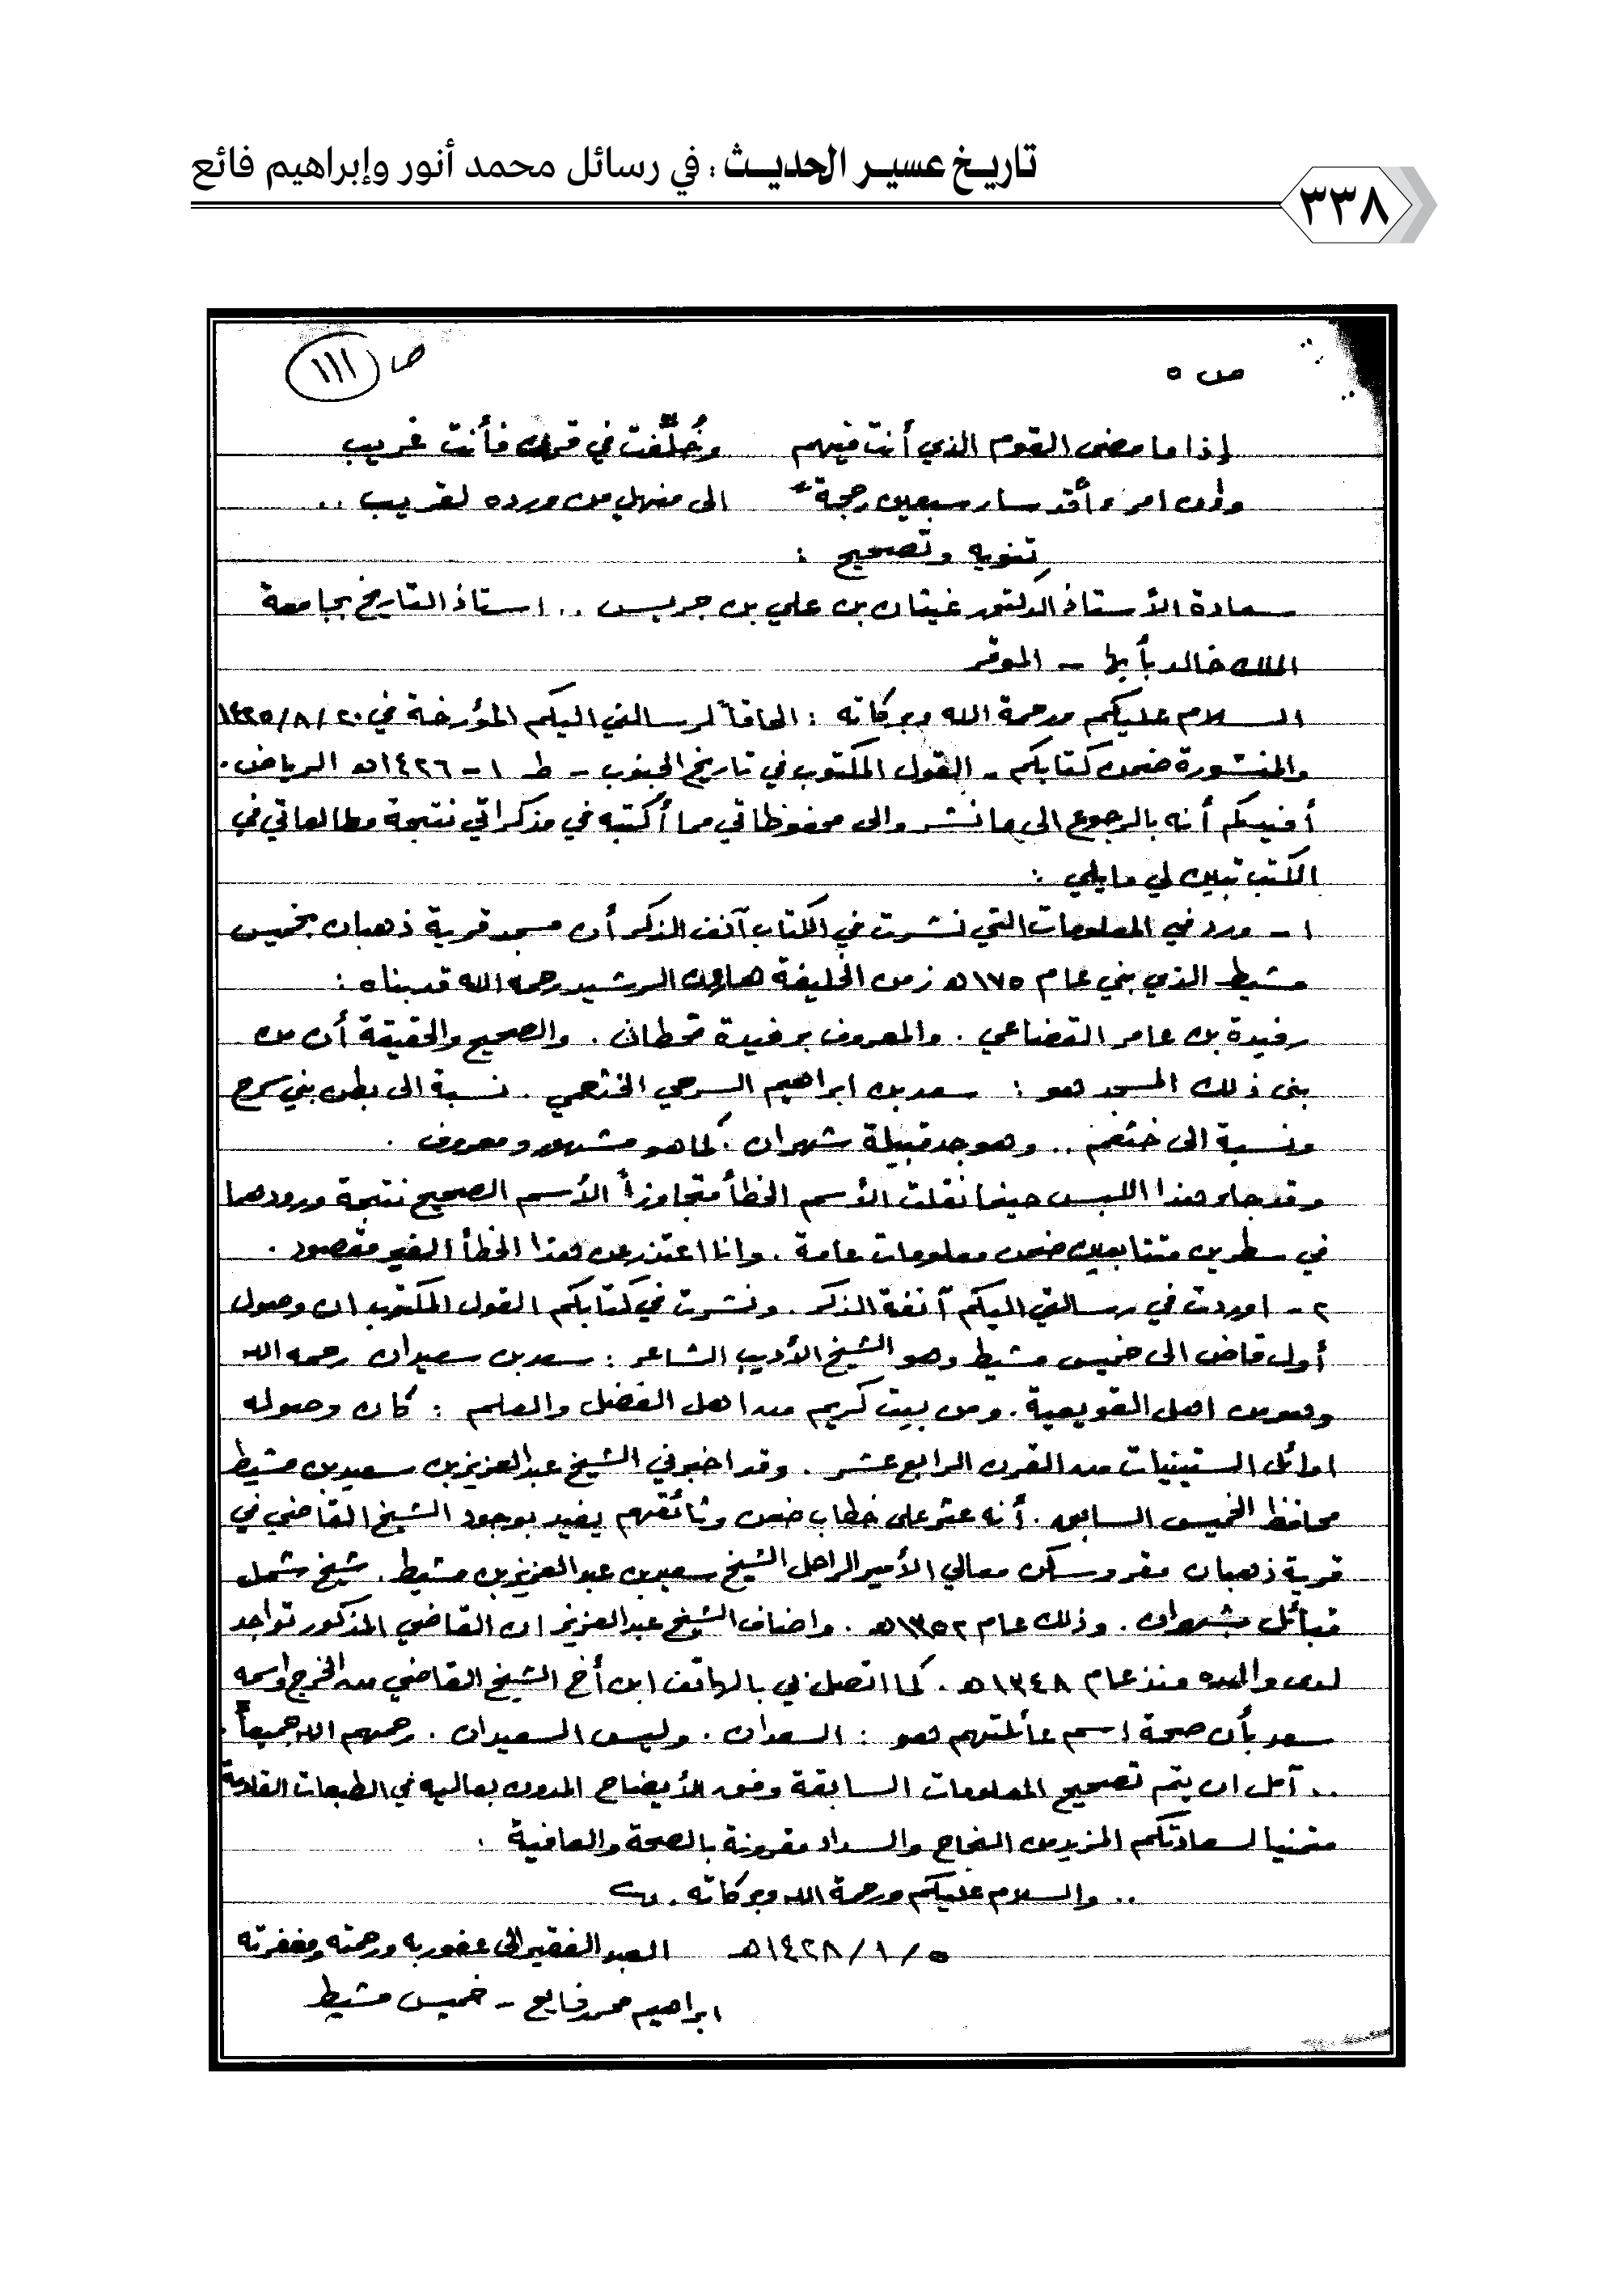 تاريخ عسير الحديث : في رسائل محمد أنور وإبراهيم فائع
٣٣٨
ص ٥
ص ١١١
إذا ما مضى القوم الذي أنت فيهم وخُلِّفت في قرن فأنت غريب
وإن امرءاً قد سار سبعين حجة الى منهل من ورده لقريب ..
تنويه وتصحيح :
سعادة الأستاذ الدكتور غيثان بن علي بن جريس .. استاذ التاريخ بجامعة
الملك خالد بأبها - الموقر
السلام عليكم ورحمة الله وبركاته : الحاقاً لرسالتي اليكم المؤرخة في ٢٠/٨/١٤٢٥
والمنشورة ضمن كتابكم - القول المكتوب في تاريخ الجنوب - ط ١ - ١٤٢٦هـ الرياض .
أفيدكم أنه بالرجوع الى ما نشر والى محفوظاتي مما أكتبه في مذكراتي نتيجة مطالعاتي في
الكتب تبين لي مايلي :
١ - ورد في المعلومات التي نشرت في الكتاب آنف الذكر أن مسجد قرية ذهبان بخميس
مشيط الذي بني عام ١٧٥هـ زمن الخليفة هارون الرشيد رحمه الله قد بناه :
رفيدة بن عامر القضاعي . والمعروف برفيدة قحطان . والصحيح والحقيقة أن من
بنى ذلك المسجد هو : سعد بن ابراهيم السرحي الخثعمي . نسبة الى بطن بني سرح
ونسبة الى خثعم .. وهو جد قبيلة شهران . كما هو مشهور ومعروف .
وقد جاء هذا اللبس حينما نقلت الأسم الخطأ متجاوزاً الأسم الصحيح نتيجة ورودهما
في سطرين متتابعين ضمن معلومات عامة . وانا اعتذر عن هذا الخطأ الغير مقصود .
٢ - اوردت في رسالتي اليكم آنفة الذكر . ونشرت في كتابكم القول المكتوب ان وصول
أول قاض الى خميس مشيط وهو الشيخ الأديب الشاعر : سعد بن سعيدان رحمه الله
وهو من اهل القويعية . ومن بيت كريم من اهل الفضل والعلم : كان وصوله
اوائل الستينيات من القرن الرابع عشر . وقد اخبرني الشيخ عبدالعزيز بن سعيد بن مشيط
محافظ الخميس السابق . أنه عثر على خطاب ضمن وثائقهم يفيد بوجود الشيخ القاضي في
قرية ذهبان مقر وسكن معالي الأمير الراحل الشيخ سعيد بن عبدالعزيز بن مشيط . شيخ شمل
قبائل شهران . وذلك عام ١٣٥٢هـ . واضاف الشيخ عبدالعزيز ان القاضي المذكور تواجد
لدى والده منذ عام ١٣٤٨هـ . كما اتصل بي بالهاتف ابن أخ الشيخ القاضي من الخرج واسمه
سعد بأن صحة إسم عائلتهم هو : السعدان . وليس السعيدان . رحمهم الله جميعاً .
.. آمل ان يتم تصحيح المعلومات السابقة وفق الأيضاح المدون بعاليه في الطبعات القادمة
متمنيا لسعادتكم المزيد من النجاح والسداد مقرونة بالصحة والعافية :
.. والسلام عليكم ورحمة الله وبركاته .
٥/١/١٤٢٨هـ العبد الفقير الى عفو ربه ورحمته ومغفرته
ابراهيم محمد فايع - خميس مشيط